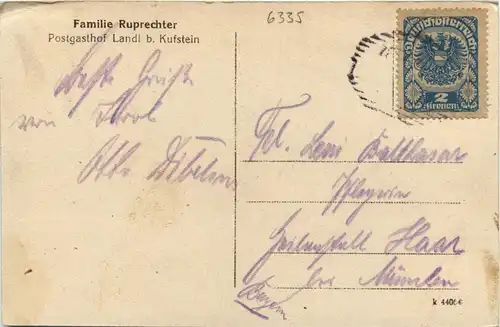 Familie Ruprechter
Postgasthof Landl b. Kufstein
6335
Deutschösterreich
2
Kronen
Beste Grüße
von Tirol
Otto
Frl. Leni Balthasar
Pflegerin
Heilanstalt Haar
bei München
Bayern
k 4406